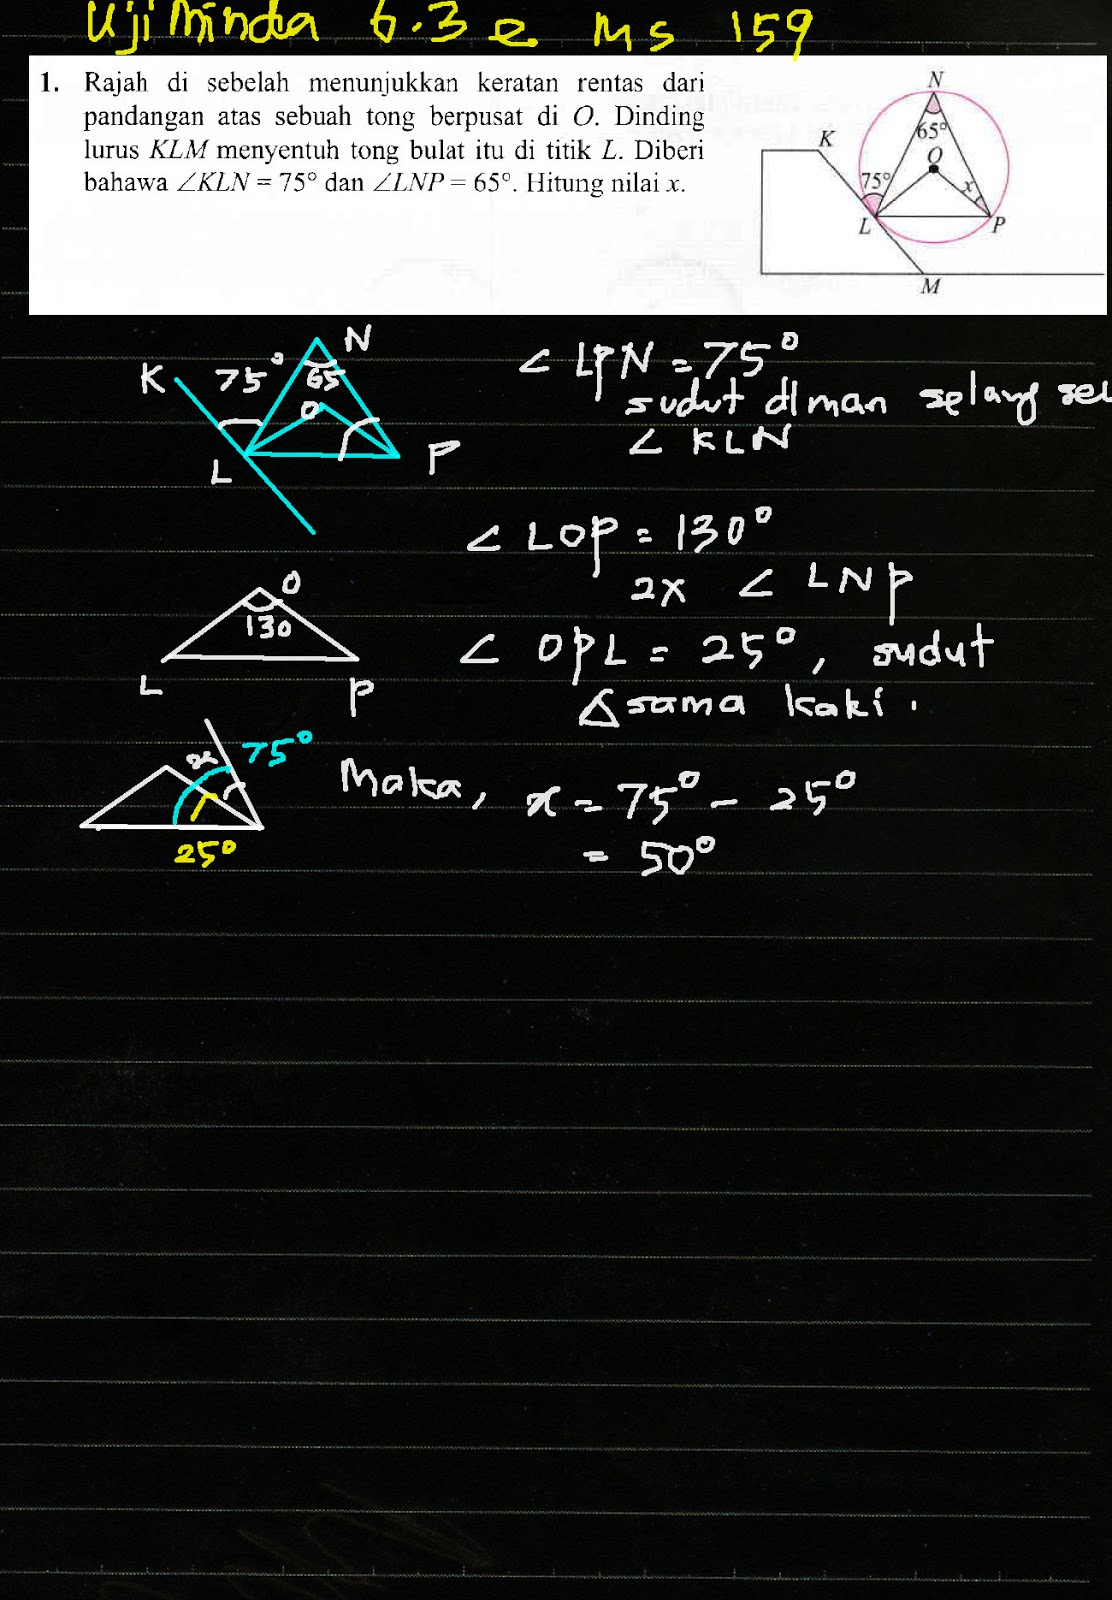 Uji Minda 6.3 e ms 159
1. Rajah di sebelah menunjukkan keratan rentas dari
pandangan atas sebuah tong berpusat di O. Dinding
lurus KLM menyentuh tong bulat itu di titik L. Diberi
bahawa ∠KLN = 75° dan ∠LNP = 65°. Hitung nilai x.
N
K
65°
O
75°
x
L
P
M
N
K
75°
65
O
L
P
∠ LPN = 75°
sudut dlman selang sel
∠ KLN
∠ LOP = 130°
2x ∠ LNP
O
130
L
P
∠ OPL = 25°, sudut
△ sama kaki.
x
75°
25°
Maka, x = 75° - 25°
= 50°